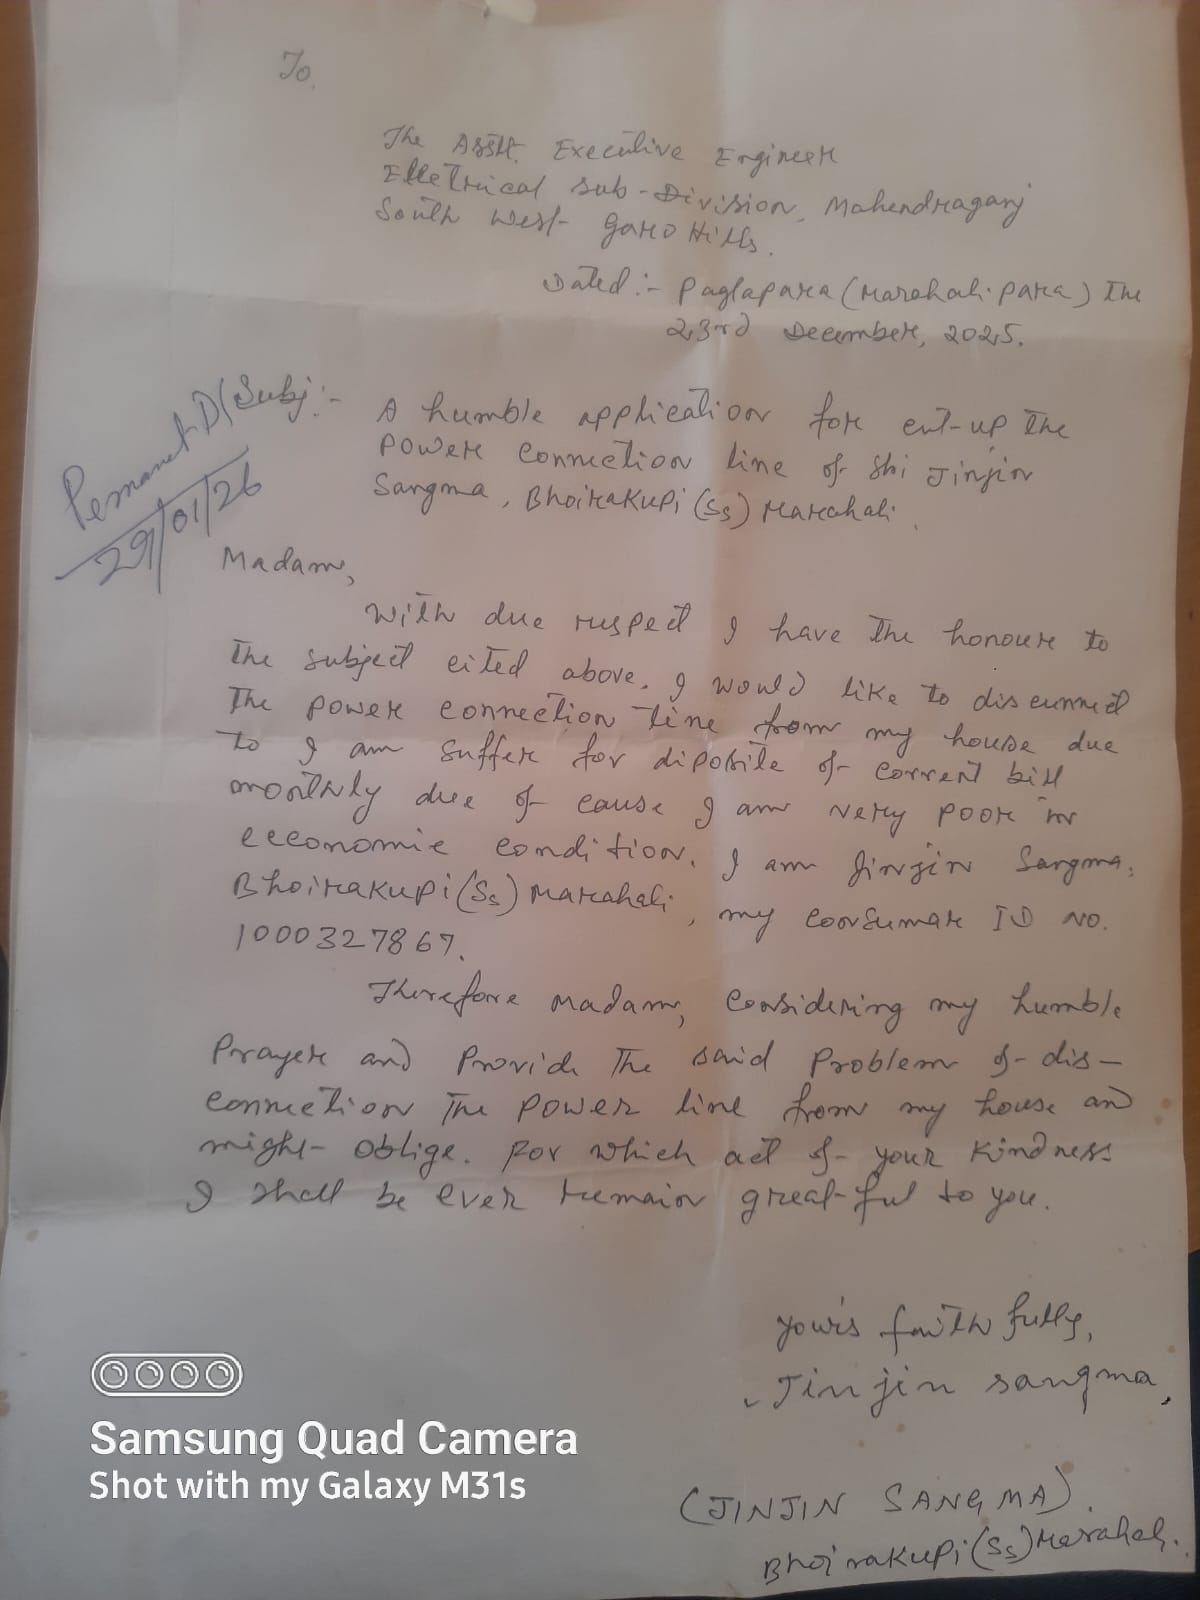 To,
The Asstt. Executive Engineer
Elletrical Sub-Division, Mahendraganj
South West Garo Hills.
Dated:- Paglapara (Marahali-para) The
23rd December, 2025.
Subj:- A humble application for cut-up the
Power connection line of Shi Jinjin
Sangma, Bhoirakupi (Ss) Marahali.
Permanet D/
29/01/26
Madam,
With due respect I have the honour to
the subject cited above. I would like to discunnect
The power connection line from my house due
to I am suffer for diposite of corrent bill
monthly due of cause I am very poor in
ecconomic condition. I am Jinjin Sangma.
Bhoirakupi (Ss) Marahali, my consumar ID No.
1000327867.
Therefore Madam, considering my humble
Prayer and Provide The said Problem of dis-
connection The power line from my house and
might oblige. For which act of your kindness
I shall be ever remain great-ful to you.
Your's faithfully,
Jinjin sangma,
(JINJIN SANGMA).
Bhoirakupi (Ss) Marahali.
Samsung Quad Camera
Shot with my Galaxy M31s